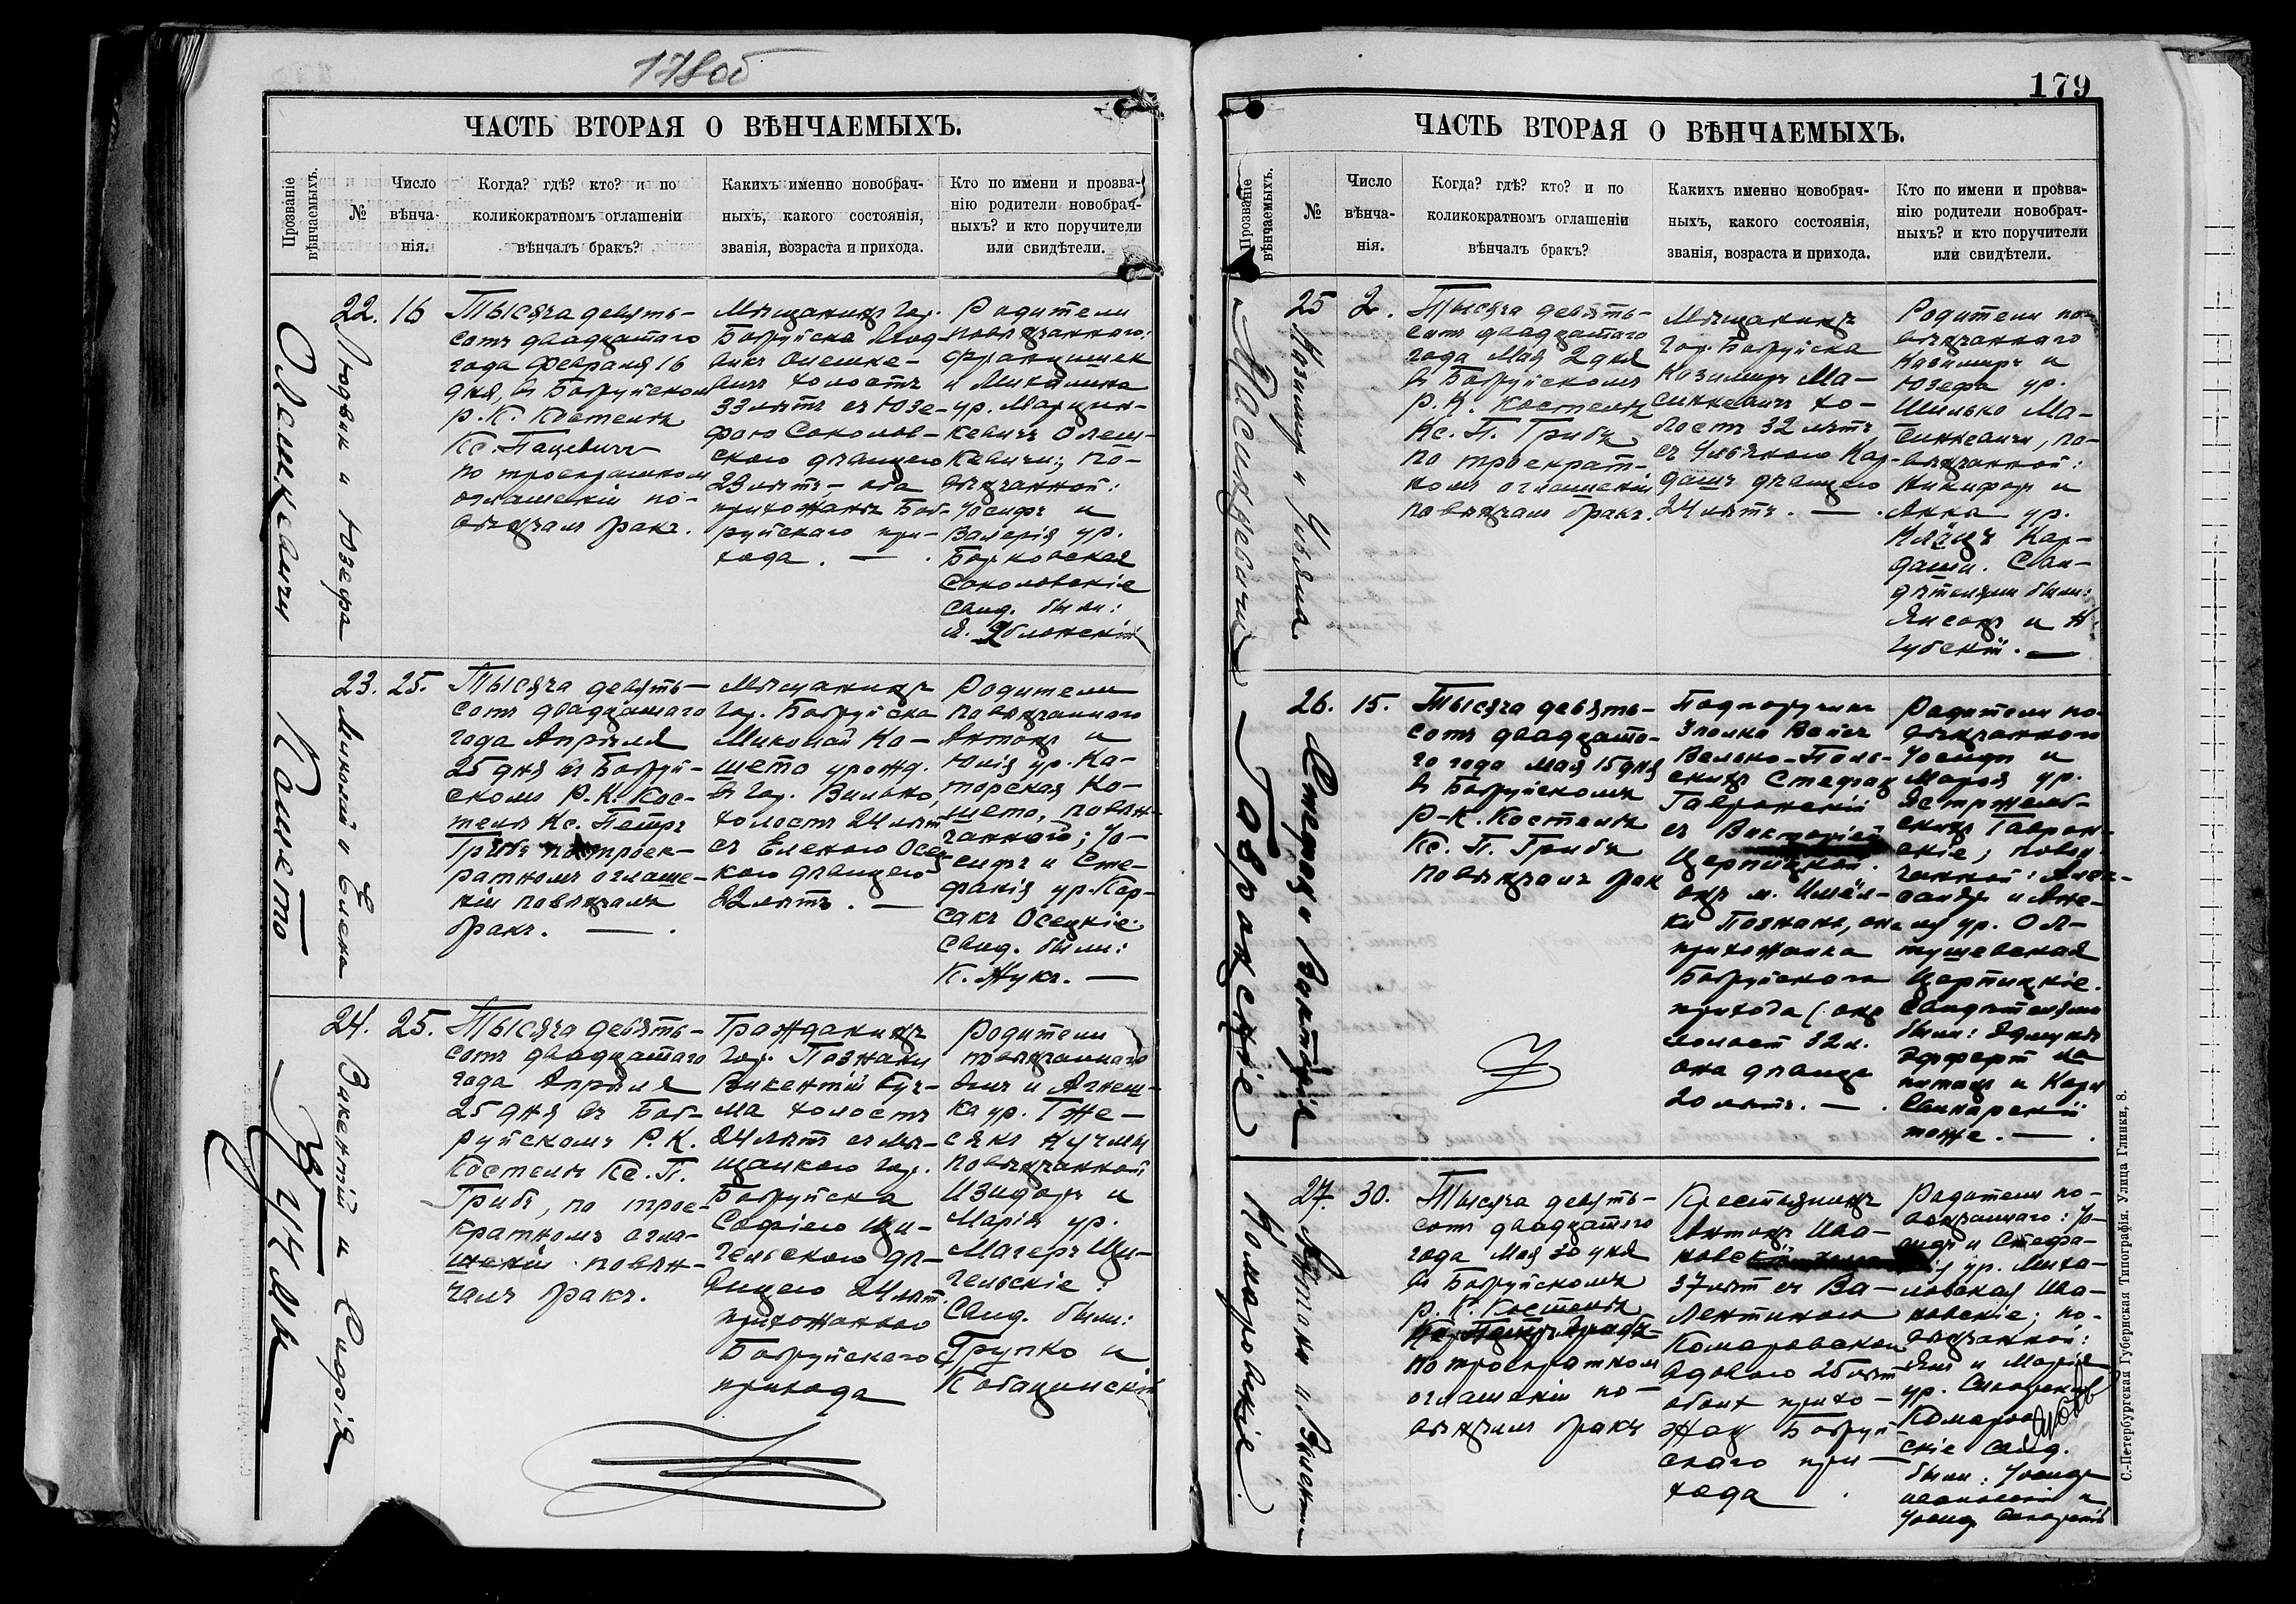 178об
ЧАСТЬ ВТОРАЯ О ВѢНЧАЕМЫХЪ.
Прозваніе вѣнчаемыхъ.
№
Число вѣнча-нія.
Когда? гдѣ? кто? и по
коликократномъ оглашеніи
вѣнчалъ бракъ?
Какихъ именно новобрач-
ныхъ, какого состоянія,
званія, возраста и прихода.
Кто по имени и прозва-
нію родители новобрач-
ныхъ? и кто поручители
или свидѣтели.
Олешкевичи
Людвик и Юзефа
22. 16
Тысяча девять-
сотъ двадцатаго
года Февраля 16
дня, въ Бобруйском
р. К. Костелѣ
Кс. Пацевичъ
по троекратном
оглашеніи по-
вѣнчалъ бракъ.
Мѣщанинъ гор.
Бобруйска Люд-
викъ Олешке-
вичъ холостъ
33 лѣтъ съ Юзе-
фою Соколов-
скою дѣвицею
23 лѣтъ, оба
прихожанъ Боб-
руйскаго при-
хода. —
Родители
повѣнчаннаго:
Францишек
и Михалина
ур. Марцин-
кевичъ Олеш-
кевичи; по-
вѣнчанной:
Іосифъ и
Валерія ур.
Борковская
Соколовскіе
Свид. были:
Яблонскій
Кошето
Миколай и Елена
23. 25.
Тысяча девять-
сотъ двадцатаго
года Апрѣля
25 дня въ Бобруй-
скомъ Р. К. Кос-
телѣ Кс. Петръ
Грибъ по троек-
ратномъ оглаше-
ніи повѣнчалъ
бракъ. —
Мѣщанинъ
гор. Бобруйска
Миколай Ко-
шето урожд.
въ гор. Вильно,
холостъ 24 лѣт
съ Еленою Осец-
кою дѣвицею
22 лѣтъ. —
Родители
повѣнчаннаго
Антонъ и
Юлія ур. Ка-
торская Ко-
шето, повѣн-
чанной; Іо-
сифъ и Сте-
фанія ур. Кор-
сакъ Осецкіе.
Свид. были:
К. Жукъ. —
Викентій и Софія
24. 25.
Тысяча девять-
сотъ двадцатаго
года Апрѣля
25 дня въ Боб-
руйскомъ Р. К.
Костелѣ Кс. П.
Грибъ, по трое-
кратномъ огла-
шеніи повѣн-
чалъ бракъ.
Гражданинъ
гор. Познани
Викентій Куч-
ма холостъ
24 лѣт съ мѣ-
щанкою гор.
Бобруйска
Софіею Ци-
гельскою дѣ-
вицею 24 лѣт.
прихожанкою
Бобруйскаго
прихода
Родители
повѣнчаннаго
и Агнеш-
ка ур. Гже-
сякъ Кучмы
повѣнчанной
Изидоръ и
Марія ур.
Мачеръ Ци-
гельскіе:
Свид. были:
Групко и
179
ЧАСТЬ ВТОРАЯ О ВѢНЧАЕМЫХЪ.
Прозваніе вѣнчаемыхъ.
№
Число вѣнча-нія.
Когда? гдѣ? кто? и по
коликократномъ оглашеніи
вѣнчалъ бракъ?
Какихъ именно новобрач-
ныхъ, какого состоянія,
званія, возраста и прихода.
Кто по имени и прозва-
нію родители новобрач-
ныхъ? и кто поручители
или свидѣтели.
Казимир и Ульяна
25 2.
Тысяча девять-
сотъ двадцатаго
года Мая 2 дня
въ Бобруйскомъ
р. К. Костелѣ
Кс. П. Грибъ
по троекрат-
номъ оглашеніи
повѣнчалъ бракъ.
Мѣщанинъ
гор. Бобруйска
Казимиръ Ма-
синкевичъ хо-
лостъ 32 лѣтъ
съ Ульяною Кар-
дашъ дѣвицею
24 лѣтъ. —
Родители по-
вѣнчаннаго
Казимиръ и
Юзефа ур.
Шилько Ма-
синкевичи, по-
вѣнчанной:
Никифоръ и
Анна ур.
Кар-
даши. Сви-
дѣтелями были:
и
Губскій. —
Гавронскіе
Стефан и Викторія
26. 15.
Тысяча девять-
сотъ двадцата-
го года Мая 15 дня
въ Бобруйскомъ
р-К. Костелѣ
Кс. П. Грибъ
повѣнчалъ брак
Подпоручик
3 полка Войск
Велико-Поль-
скихъ Стефан
Гавронскій
съ Викторіей
Церпицкой.
онъ м.
Познань, она
прихожанка
Бобруйскаго
прихода (онъ
холост 32 л.
она дѣвица
20 лѣтъ. —
Родители по-
вѣнчаннаго
Іосифъ и
Марія ур.
Ястржемб-
скихъ Гаврон-
скіе; повѣн-
чанной:
и Анеля
ур. Ол-
тушевская
Церпицкіе.
Свидѣтелями
были: Эдмундъ
и
тоже. —
Комаровскіе
Антонъ и Валентина
27. 30.
Тысяча девять-
сотъ двадцатаго
года Мая 30 дня
въ Бобруйскомъ
р. К. Костелѣ
Кс. Петръ Грибъ
по троекратном
оглашеніи по-
вѣнчалъ бракъ
Крестьянинъ
Антонъ Ива-
новскій
37 лѣт съ Ва-
лентиною
Комаровской
вдовою 25 лѣт
обоих прихо-
жан Бобруй-
скаго при-
хода.
Родители по-
вѣнчаннаго: Іо-
сифъ и Стефа-
нія ур. Миха-
ловская Ива-
новскіе; по-
вѣнчанной:
Янъ и Марія
ур.
Комаров-
скіе Свид.
были: Іосифъ
и
Іосиф
С.-Петербургская Губернская Типографія. Улица Глинки, 8.